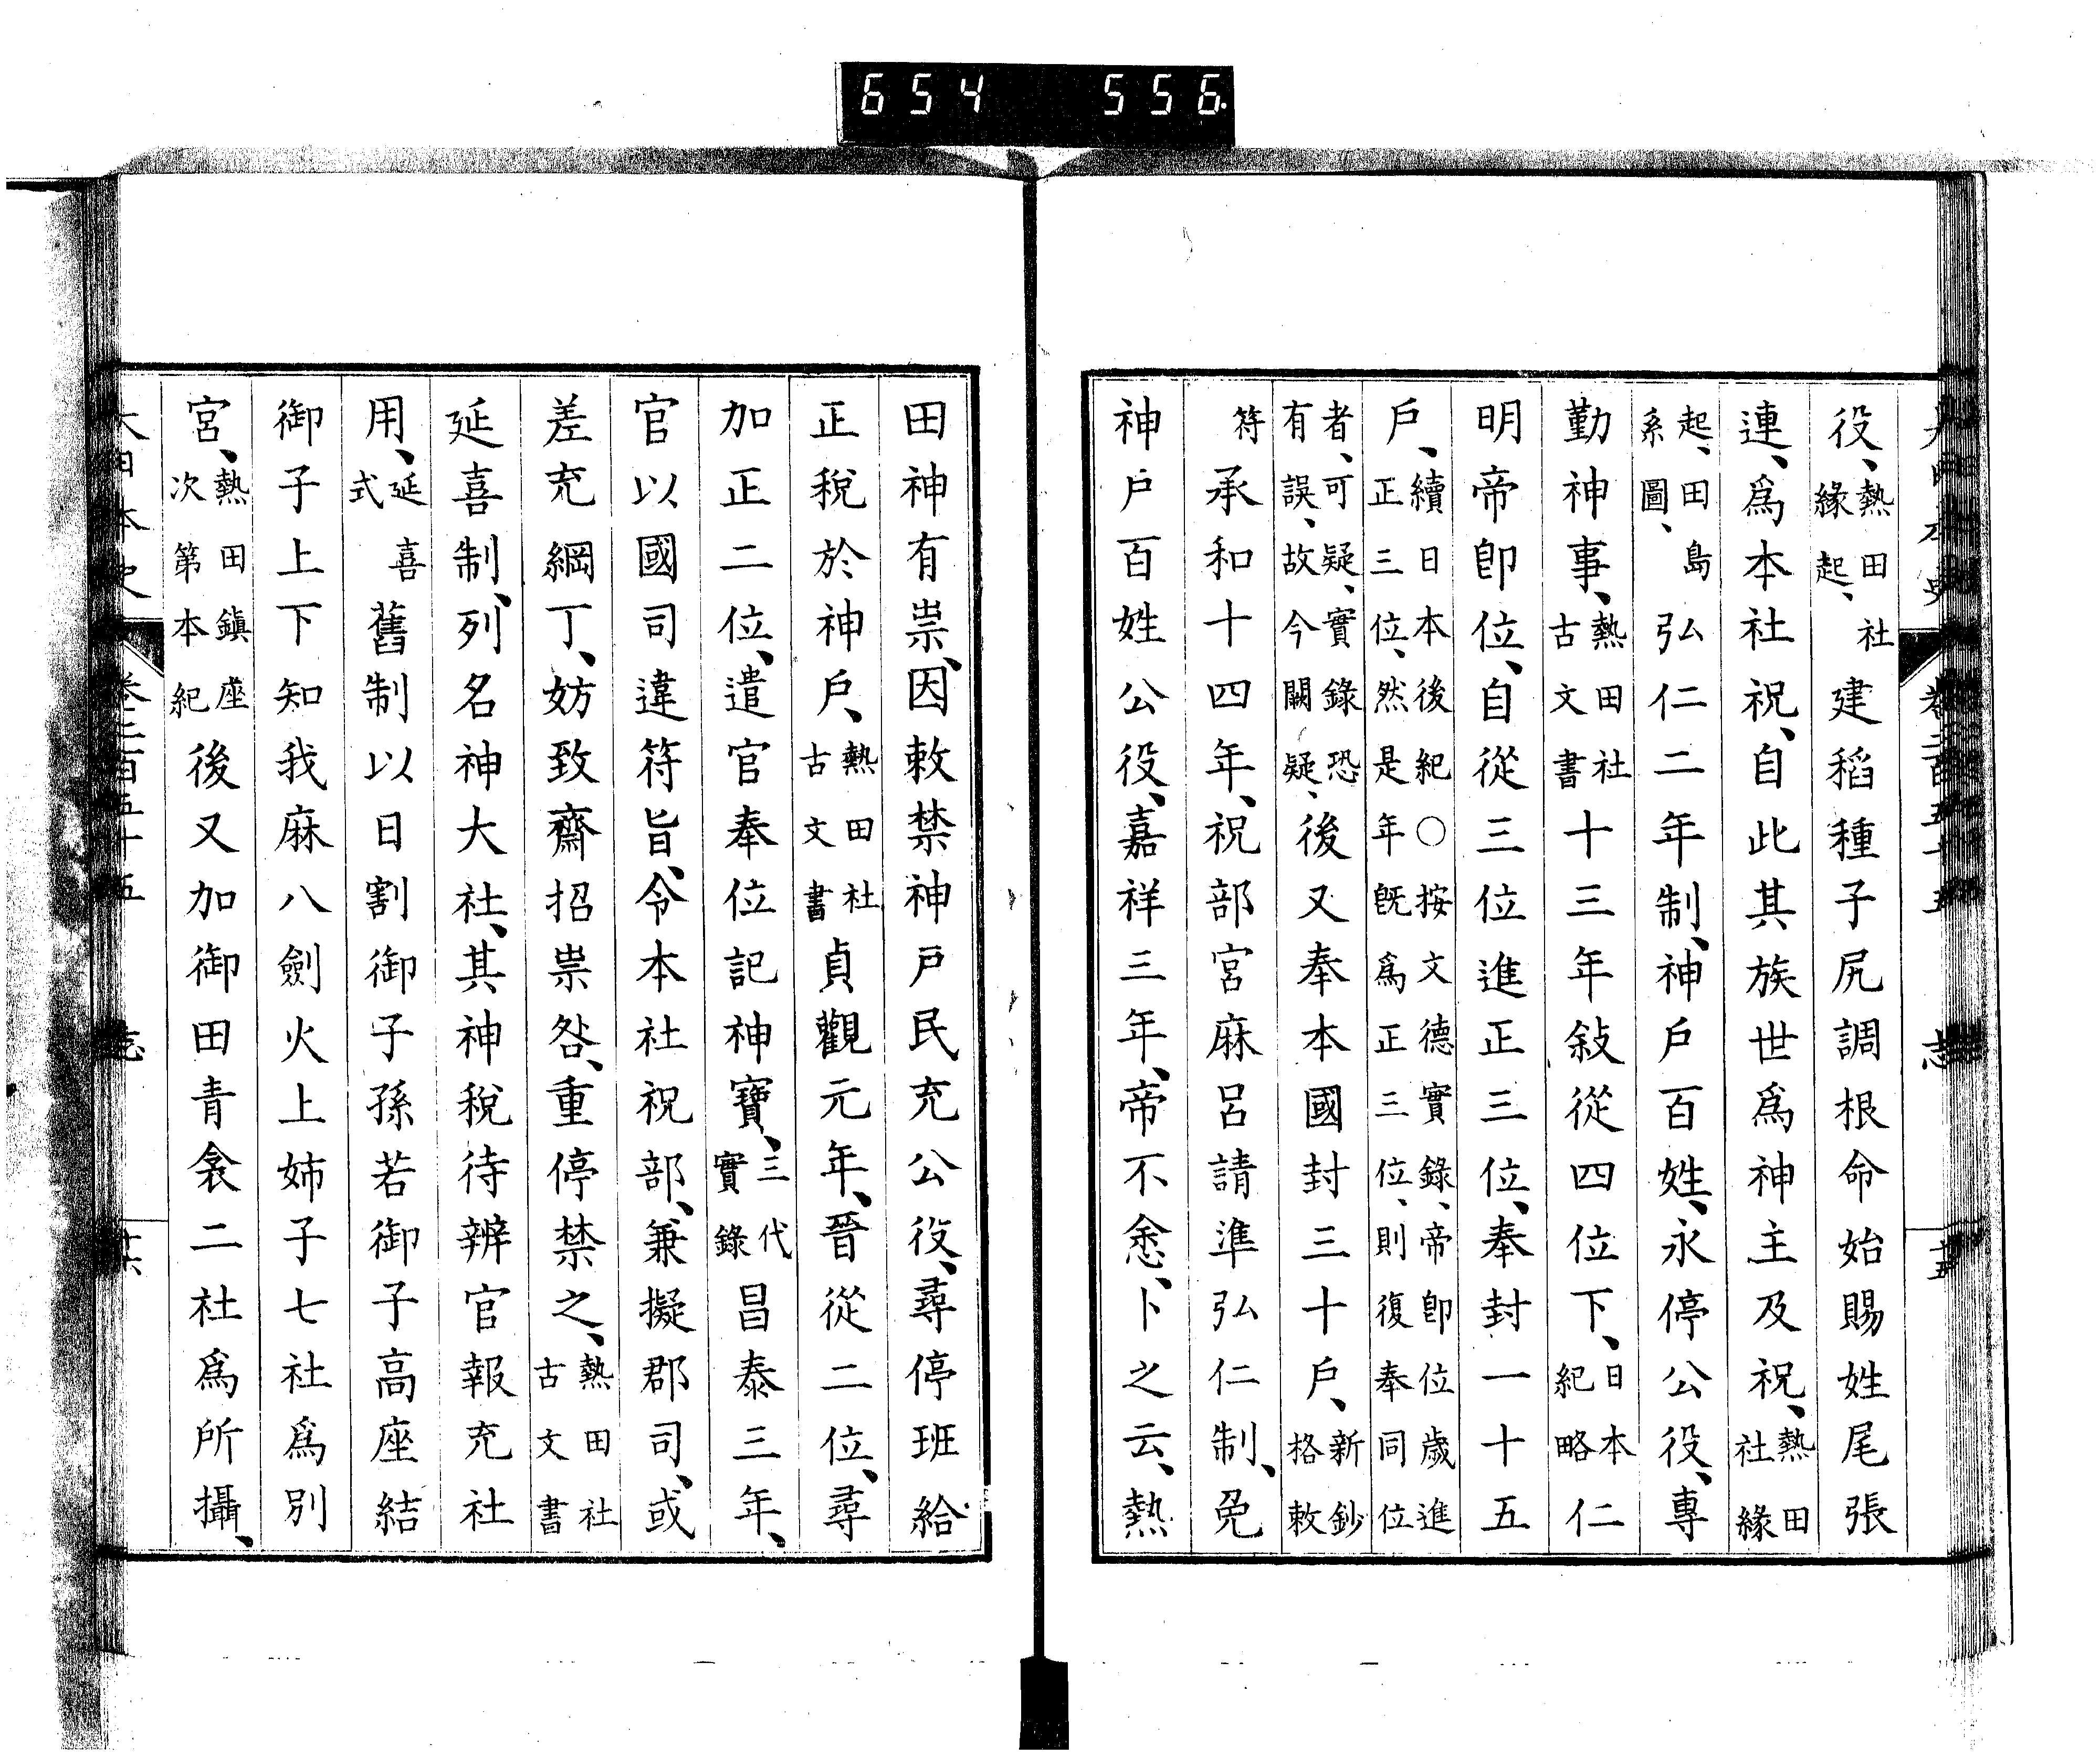 654 556
大日本史 卷二百五十五 志 十五
役、熱田社緣起、建稻種子尻調根命始賜姓尾張
連、爲本社祝、自此其族世爲神主及祝、熱田社緣
起、田島系圖、弘仁二年制、神戶百姓、永停公役、專
勤神事、熱田社古文書十三年敍從四位下、日本紀略仁
明帝卽位、自從三位進正三位、奉封一十五
戶、續日本後紀○按文德實錄、帝卽位歲進正三位、然是年旣爲正三位、則復奉同位
者、可疑、實錄恐有誤、故今闕疑、後又奉本國封三十戶、新鈔格敕
符承和十四年、祝部宮麻呂請準弘仁制、免
神戶百姓公役、嘉祥三年、帝不悆、卜之云、熱
田神有祟、因敕禁神戶民充公役、尋停班給
正稅於神戶、熱田社古文書貞觀元年、晉從二位、尋
加正二位、遣官奉位記神寶、三代實錄昌泰三年、
官以國司違符旨、令本社祝部、兼擬郡司、或
差充綱丁、妨致齋招祟咎、重停禁之、熱田社古文書
延喜制、列名神大社、其神稅待辨官報充社
用、延喜式舊制以日割御子孫若御子高座結
御子上下知我麻八劍火上姉子七社爲別
宮、熱田鎭座次第本紀後又加御田青衾二社爲所攝、
大日本史 卷二百五十五 志 十六